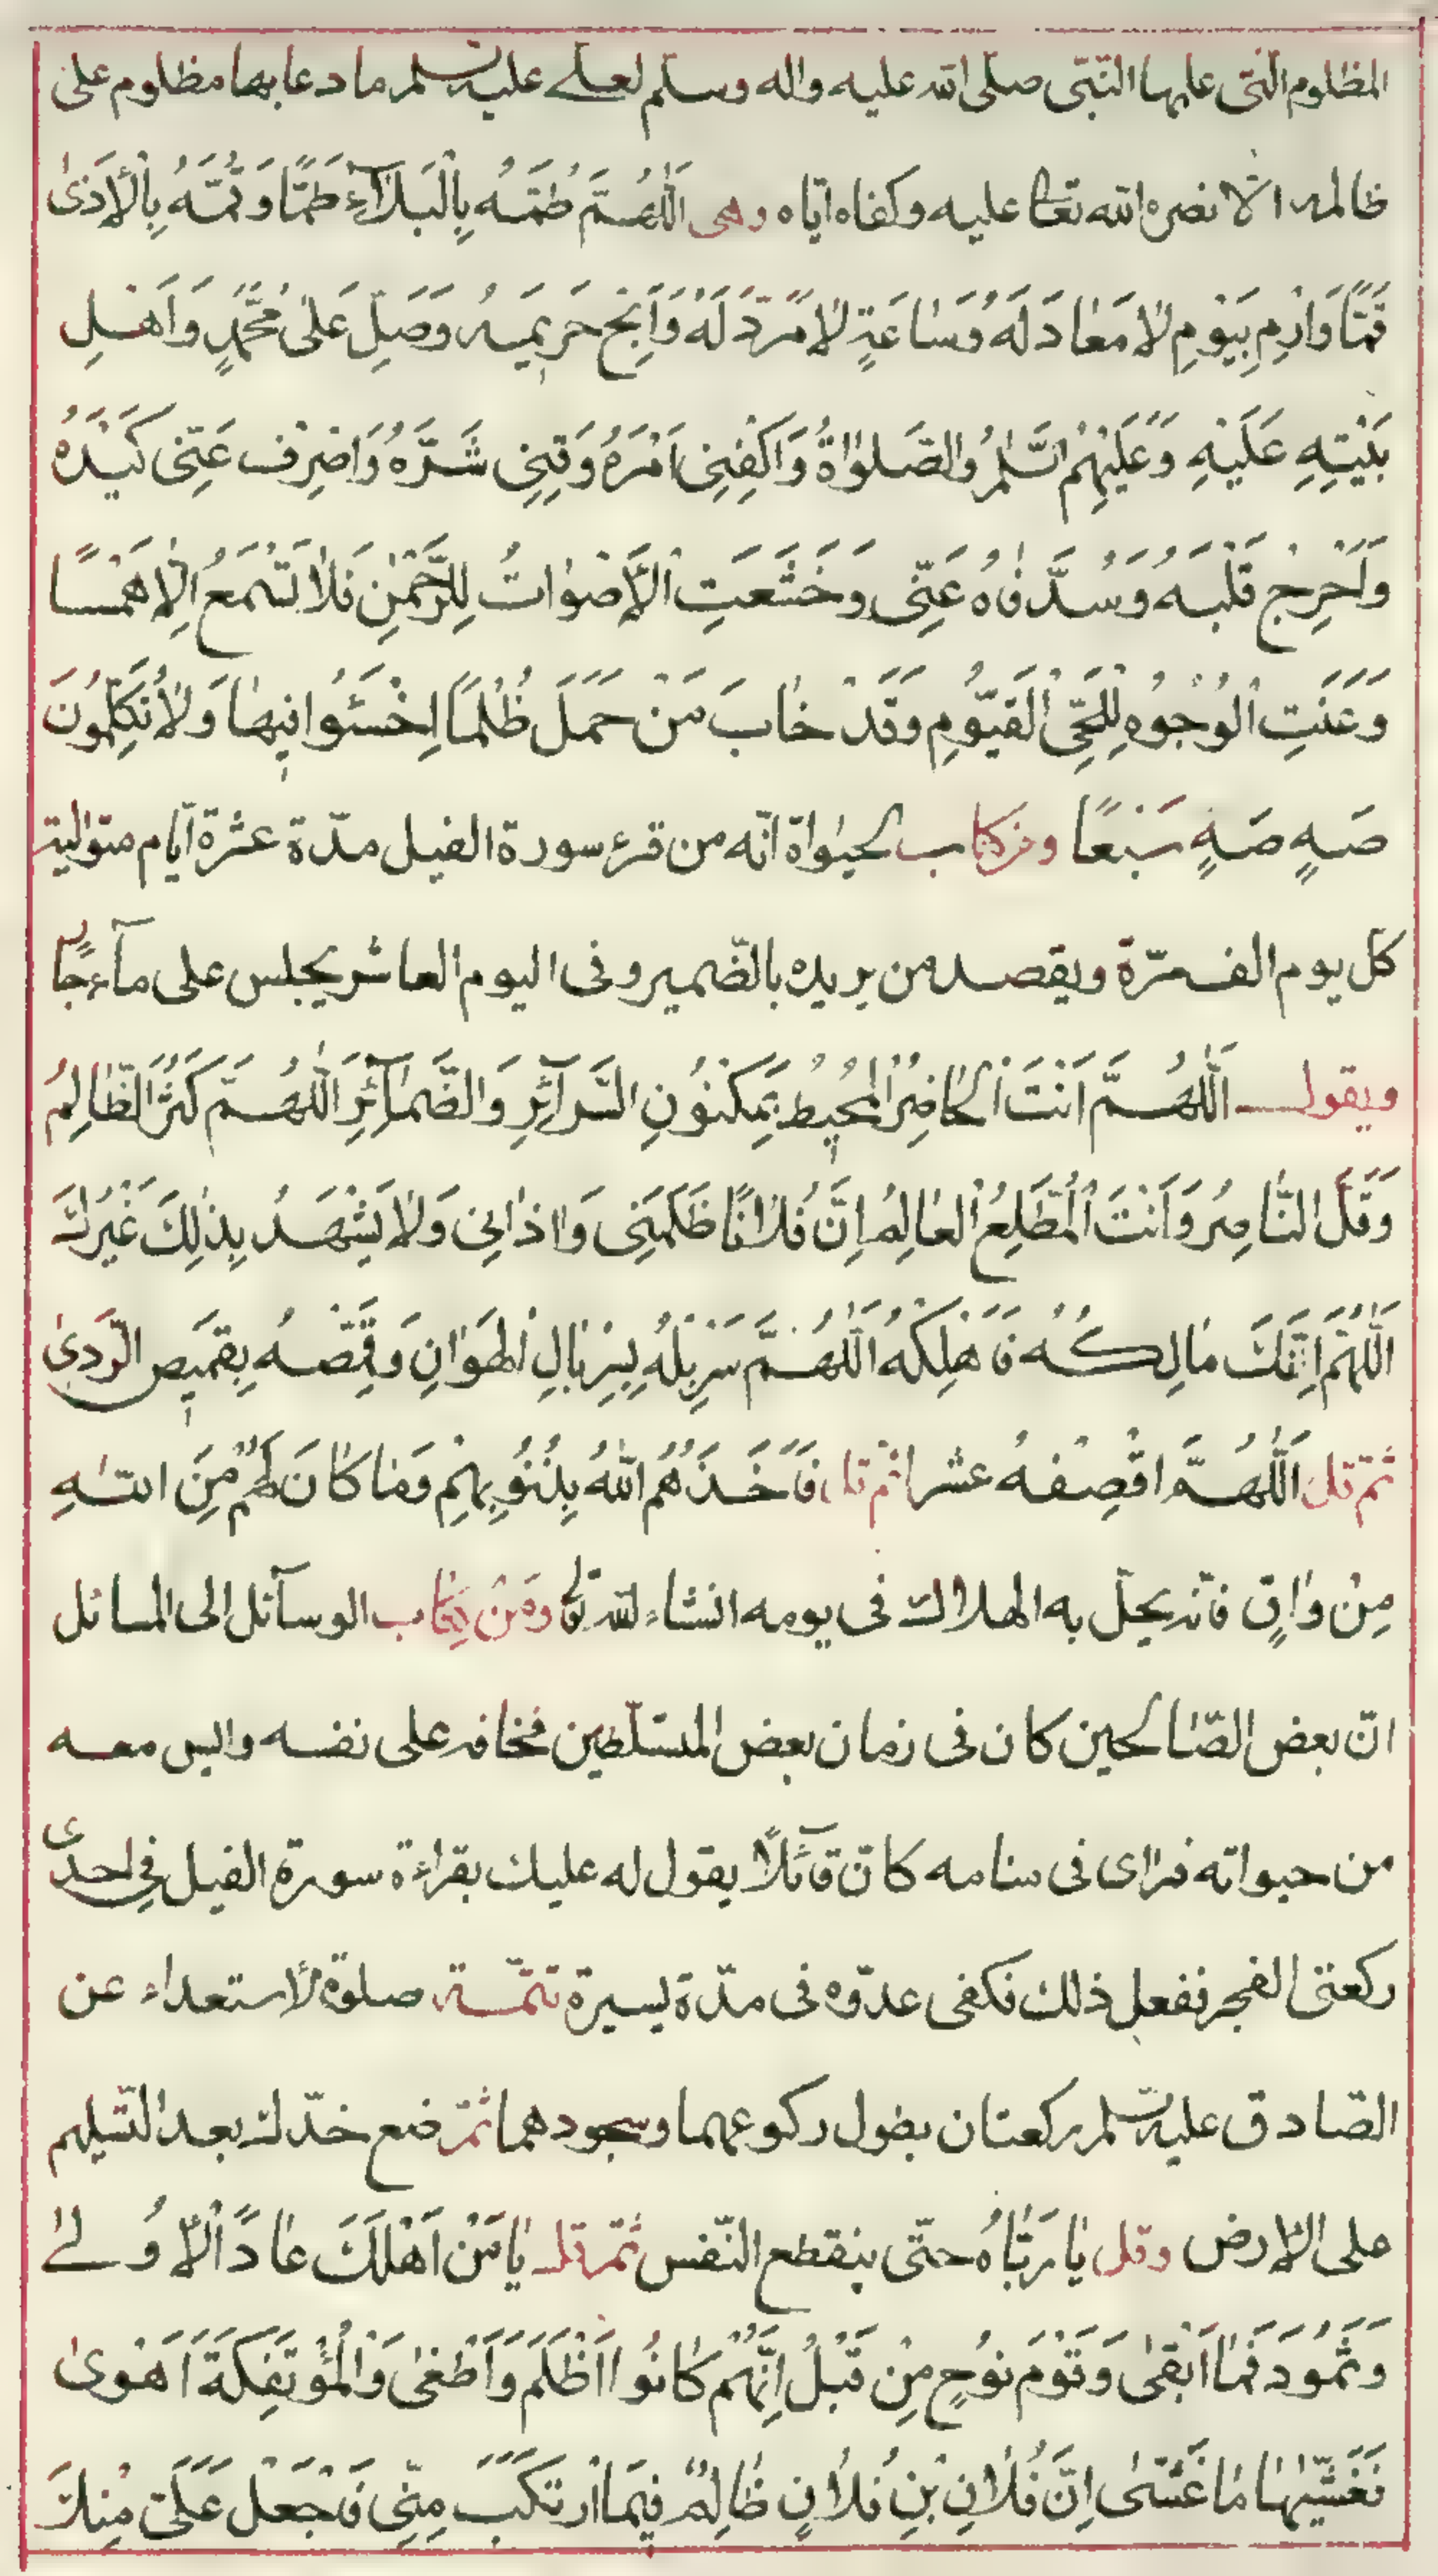 المظلوم الّتى علمها النّبىّ صلى الله عليه واله وسلم لعلى عليه السلم ما دعا بها مظلوم على
ظالمه الّا نصره الله تعالى عليه وكفاه ايّاه وهى اَللّٰهُمَّ طُمَّهُ بِالْبَلاٰۤءِ طَمًّا وَ قُمَّهُ بِالْاَذىٰ
قَمًّا وَارْمِهِ بِيَوْمٍ لاٰ مَعٰادَ لَهُ وَسٰاعَةٍ لاٰ مَرَدَّ لَهٰا وَاَبِحْ حَرِيمَهُ وَصَلِّ عَلىٰ مُحَمَّدٍ وَاَهْلِ
بَيْتِهِ عَلَيْهِ وَعَلَيْهِمُ السَّلٰمُ وَالصَّلوٰاةُ وَاكْفِنِى اَمْرَهُ وَقِنِى شَرَّهُ وَاصْرِفْ عَنِّى كَيْدَهُ
وَاَحْرِجْ قَلْبَهُ وَسُدَّ فٰاهُ عَنِّى وَخَشَعَتِ الْاَصْوٰاتُ لِلرَّحْمٰنِ فَلاٰ تَسْمَعُ اِلّاٰ هَمْسًا
وَعَنَتِ الْوُجُوهُ لِلْحَىِّ الْقَيُّومِ وَقَدْ خٰابَ مَنْ حَمَلَ ظُلْمًا اِخْسَئُوا فِيهٰا وَلاٰ تُكَلِّمُونَ
صَهٍ صَهٍ سَبْعًا ومن كتاب الحيوٰاة انّه من قرء سورة الفيل مدّة عشرة ايّام متوالية
كل يوم الف مرّة ويقصد من يريده بالضّمير وفى اليوم العاشر يجلس على ماۤء جارٍ
ويقول اَللّٰهُمَّ اَنْتَ الْحٰاضِرُ الْمُحِيطُ بِمَكْنُونِ السَّرٰاۤئِرِ وَالضَّمٰاۤئِرِ اَللّٰهُمَّ كَثُرَ الظّٰالِمُ
وَقَلَّ النّٰاصِرُ وَاَنْتَ الْمُطَّلِعُ الْعٰالِمُ اِنَّ فُلاٰنًا ظَلَمَنِى وَاذٰانِى وَلاٰ يَشْهَدُ بِذٰلِكَ غَيْرُكَ
اَللّٰهُمَّ اِنَّكَ مٰالِكُهُ فَاَهْلِكْهُ اَللّٰهُمَّ سَرْبِلْهُ بِسِرْبٰالِ الْهَوٰانِ وَقَمِّصْهُ بِقَمِيصِ الرَّدىٰ
ثمّ قل اَللّٰهُمَّ اقْصِفْهُ عشرا ثم قل فَاَخَذَهُمُ اللّٰهُ بِذُنُوبِهِمْ وَمٰا كٰانَ لَهُمْ مِنَ اللّٰهِ
مِنْ وٰاقٍ فانه يحلّ به الهلاك فى يومه انشاء الله تعالى ومَنْ كِتٰاب الوسآئل الى المسائل
انّ بعض الصّالحين كان فى زمان بعض المتسلّطين فخافه على نفسه وايس معه
من حيواته فراى فى منامه كانّ قآئلًا يقول له عليك بقراءة سورة الفيل فى احدى
ركعتى الفجر ففعل ذلك فكفى عدوّه فى مدّة يسيرة تتمّـة صلوة الاستعداء عن
الصّادق عليه السّلم ركعتان يطول ركوعهما وسجودهما ثمّ ضع خدّك بعد التّسليم
على الارض وقل يٰا رَبّٰاهُ حتّى ينقطع النّفس ثمّ قل يٰا مَنْ اَهْلَكَ عٰادًا الْاُولىٰ
وَثَمُودَ فَمٰا اَبْقىٰ وَقَوْمَ نُوحٍ مِنْ قَبْلُ اِنَّهُمْ كٰانُوا اَظْلَمَ وَاَطْغىٰ وَالْمُؤْتَفِكَةَ اَهْوىٰ
فَغَشّٰيهٰا مٰا غَشّىٰ اِنَّ فُلاٰنِ بْنِ فُلاٰنٍ ظٰالِمٌ فِيمَا ارْتَكَبَ مِنِّى فَاجْعَلْ عَلَىَّ مِنْكَ